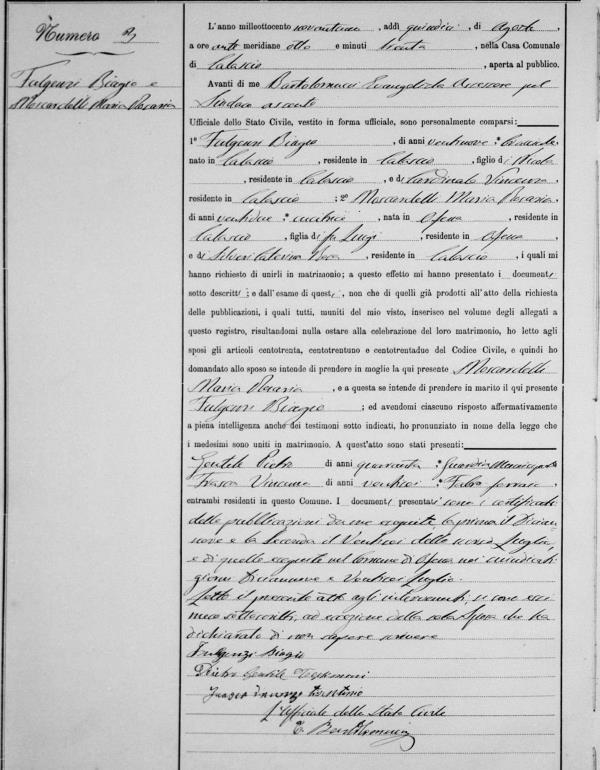 Numero
Fulgenzi Biagio e
Moscardelli Maria Rosaria
L'anno milleottocento novantuno, addì quindici, di Agosto,
a ore ante meridiane otto e minuti trenta, nella Casa Comunale
di Calascio, aperta al pubblico.
Avanti di me Bartolomucci Evangelista Assessore pel
Sindaco assente
Ufficiale dello Stato Civile, vestito in forma ufficiale, sono personalmente comparsi:
1° Fulgenzi Biagio, di anni ventinove,
nato in Calascio, residente in Calascio, figlio di Nicola
, residente in Calascio, e di Cardinale Vincenza
residente in Calascio; 2° Moscardelli Maria Rosaria
di anni ventidue, cucitrice, nata in Ofena, residente in
Calascio, figlia di fu Luigi, residente in Ofena
e di Silveri Caterina, residente in Calascio, i quali mi
hanno richiesto di unirli in matrimonio; a questo effetto mi hanno presentato i documenti
sotto descritti; e dall'esame di questi, non che di quelli già prodotti all'atto della richiesta
delle pubblicazioni, i quali tutti, muniti del mio visto, inserisco nel volume degli allegati a
questo registro, risultandomi nulla ostare alla celebrazione del loro matrimonio, ho letto agli
sposi gli articoli centotrenta, centotrentuno e centotrentadue del Codice Civile, e quindi ho
domandato allo sposo se intende di prendere in moglie la qui presente Moscardelli
Maria Rosaria, e a questa se intende di prendere in marito il qui presente
Fulgenzi Biagio; ed avendomi ciascuno risposto affermativamente
a piena intelligenza anche dei testimoni sotto indicati, ho pronunziato in nome della legge che
i medesimi sono uniti in matrimonio. A quest'atto sono stati presenti:
Gentile Pietro di anni quaranta, Guardia Municipale
Frasca Vincenzo di anni ventisei, Fabro ferraio
entrambi residenti in questo Comune. I documenti presentati sono i certificati
delle pubblicazioni da me eseguite, la prima il Dician-
nove e la seconda il Ventisei dello scorso Luglio,
e di quelle eseguite nel Comune di Ofena nei suindicati
giorni Diciannove e Ventisei Luglio.
Letto il presente atto agli intervenuti, si sono essi
meco sottoscritti, ad eccezione della sola Sposa che ha
dichiarato di non sapere scrivere
Fulgenzi Biagio
Pietro Gentile Testimoni
Frasca Vincenzo testimonio
L'Uffiziale dello Stato Civile
E. Bartolomucci